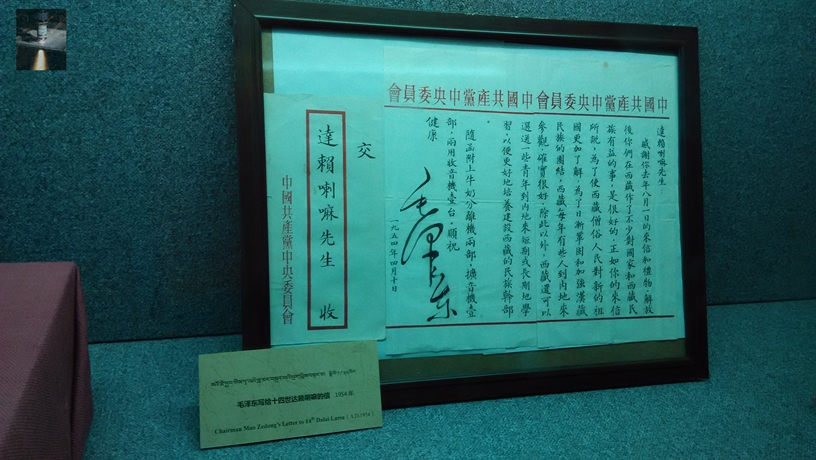 中國共產黨中央委員會 中國共產黨中央委員會
達賴喇嘛先生：
感謝你去年八月一日的來信和禮物。解放
後你們在西藏作了不少對國家和西藏民
族有益的事，是很好的。正如你的來信
所說，為了使西藏僧俗人民對新的祖
國更加了解，為了日漸鞏固和加強漢藏
民族的團結，西藏每年有些人到內地來
參觀，確實很好。除此以外，西藏還可以
選送一些青年到內地來短期或長期地學
習，以便更好地培養建設西藏的民族幹部
。
隨函附上牛奶分離機兩部，擴音機壹
部，兩用收音機壹台。願祝
健康
毛澤东
一九五四年四月十日
交
達賴喇嘛先生 收
中國共產黨中央委員會
毛泽东写给十四世达赖喇嘛的信 1954年
Chairman Mao Zedong's Letter to 14th Dalai Lama (A.D.1954)